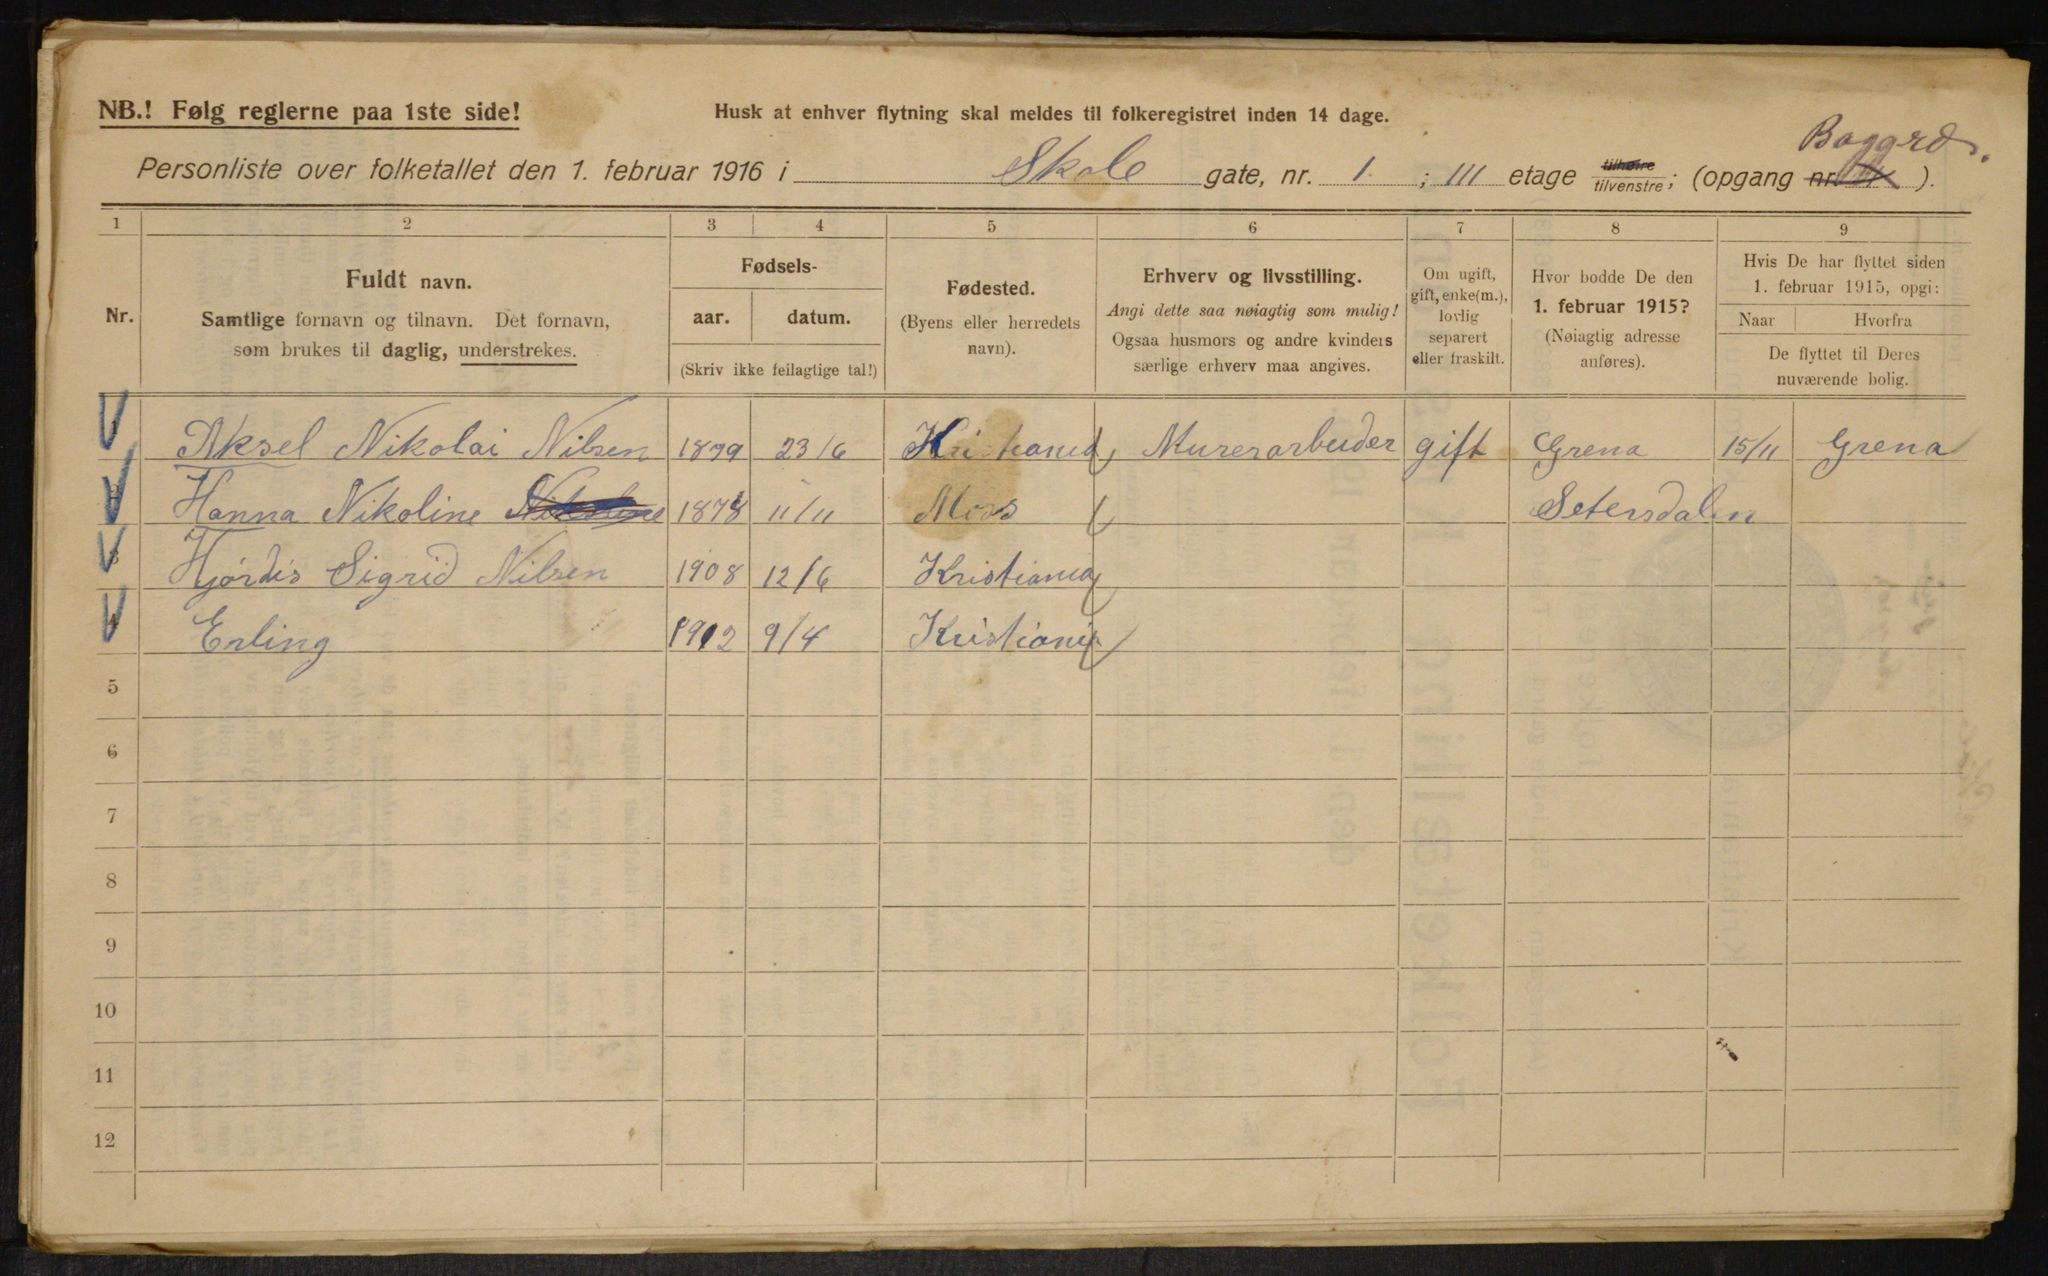 NB.! Følg reglerne paa 1ste side!
Husk at enhver flytning skal meldes til folkeregistret inden 14 dage.
Baggrd.
Personliste over folketallet den 1. februar 1916 i Skole gate, nr. 1 ; III etage tilhøire tilvenstre; (opgang nr. ).
1 2 3 4 5 6 7 8 9
Nr.
Fuldt navn.
Samtlige fornavn og tilnavn. Det fornavn,
som brukes til daglig, understrekes.
Fødsels-
aar. datum.
(Skriv ikke feilagtige tal!)
Fødested.
(Byens eller herredets
navn).
Erhverv og livsstilling.
Angi dette saa nøiagtig som mulig!
Ogsaa husmors og andre kvinders
særlige erhverv maa angives.
Om ugift,
gift, enke(m.),
lovlig
separert
eller fraskilt.
Hvor bodde De den
1. februar 1915?
(Nøiagtig adresse
anføres).
Hvis De har flyttet siden
1. februar 1915, opgi:
Naar Hvorfra
De flyttet til Deres
nuværende bolig.
Aksel Nikolai Nilsen 1879 23/6 Kristiania Murerarbeider gift Grena 15/11 Grena
2 Hanna Nikoline 1878 11/11 Moss Setersdalen
3 Hjørdis Sigrid Nilsen 1908 12/6 Kristiania
4 Erling 1912 9/4 Kristiania
5
6
7
8
9
10
11
12